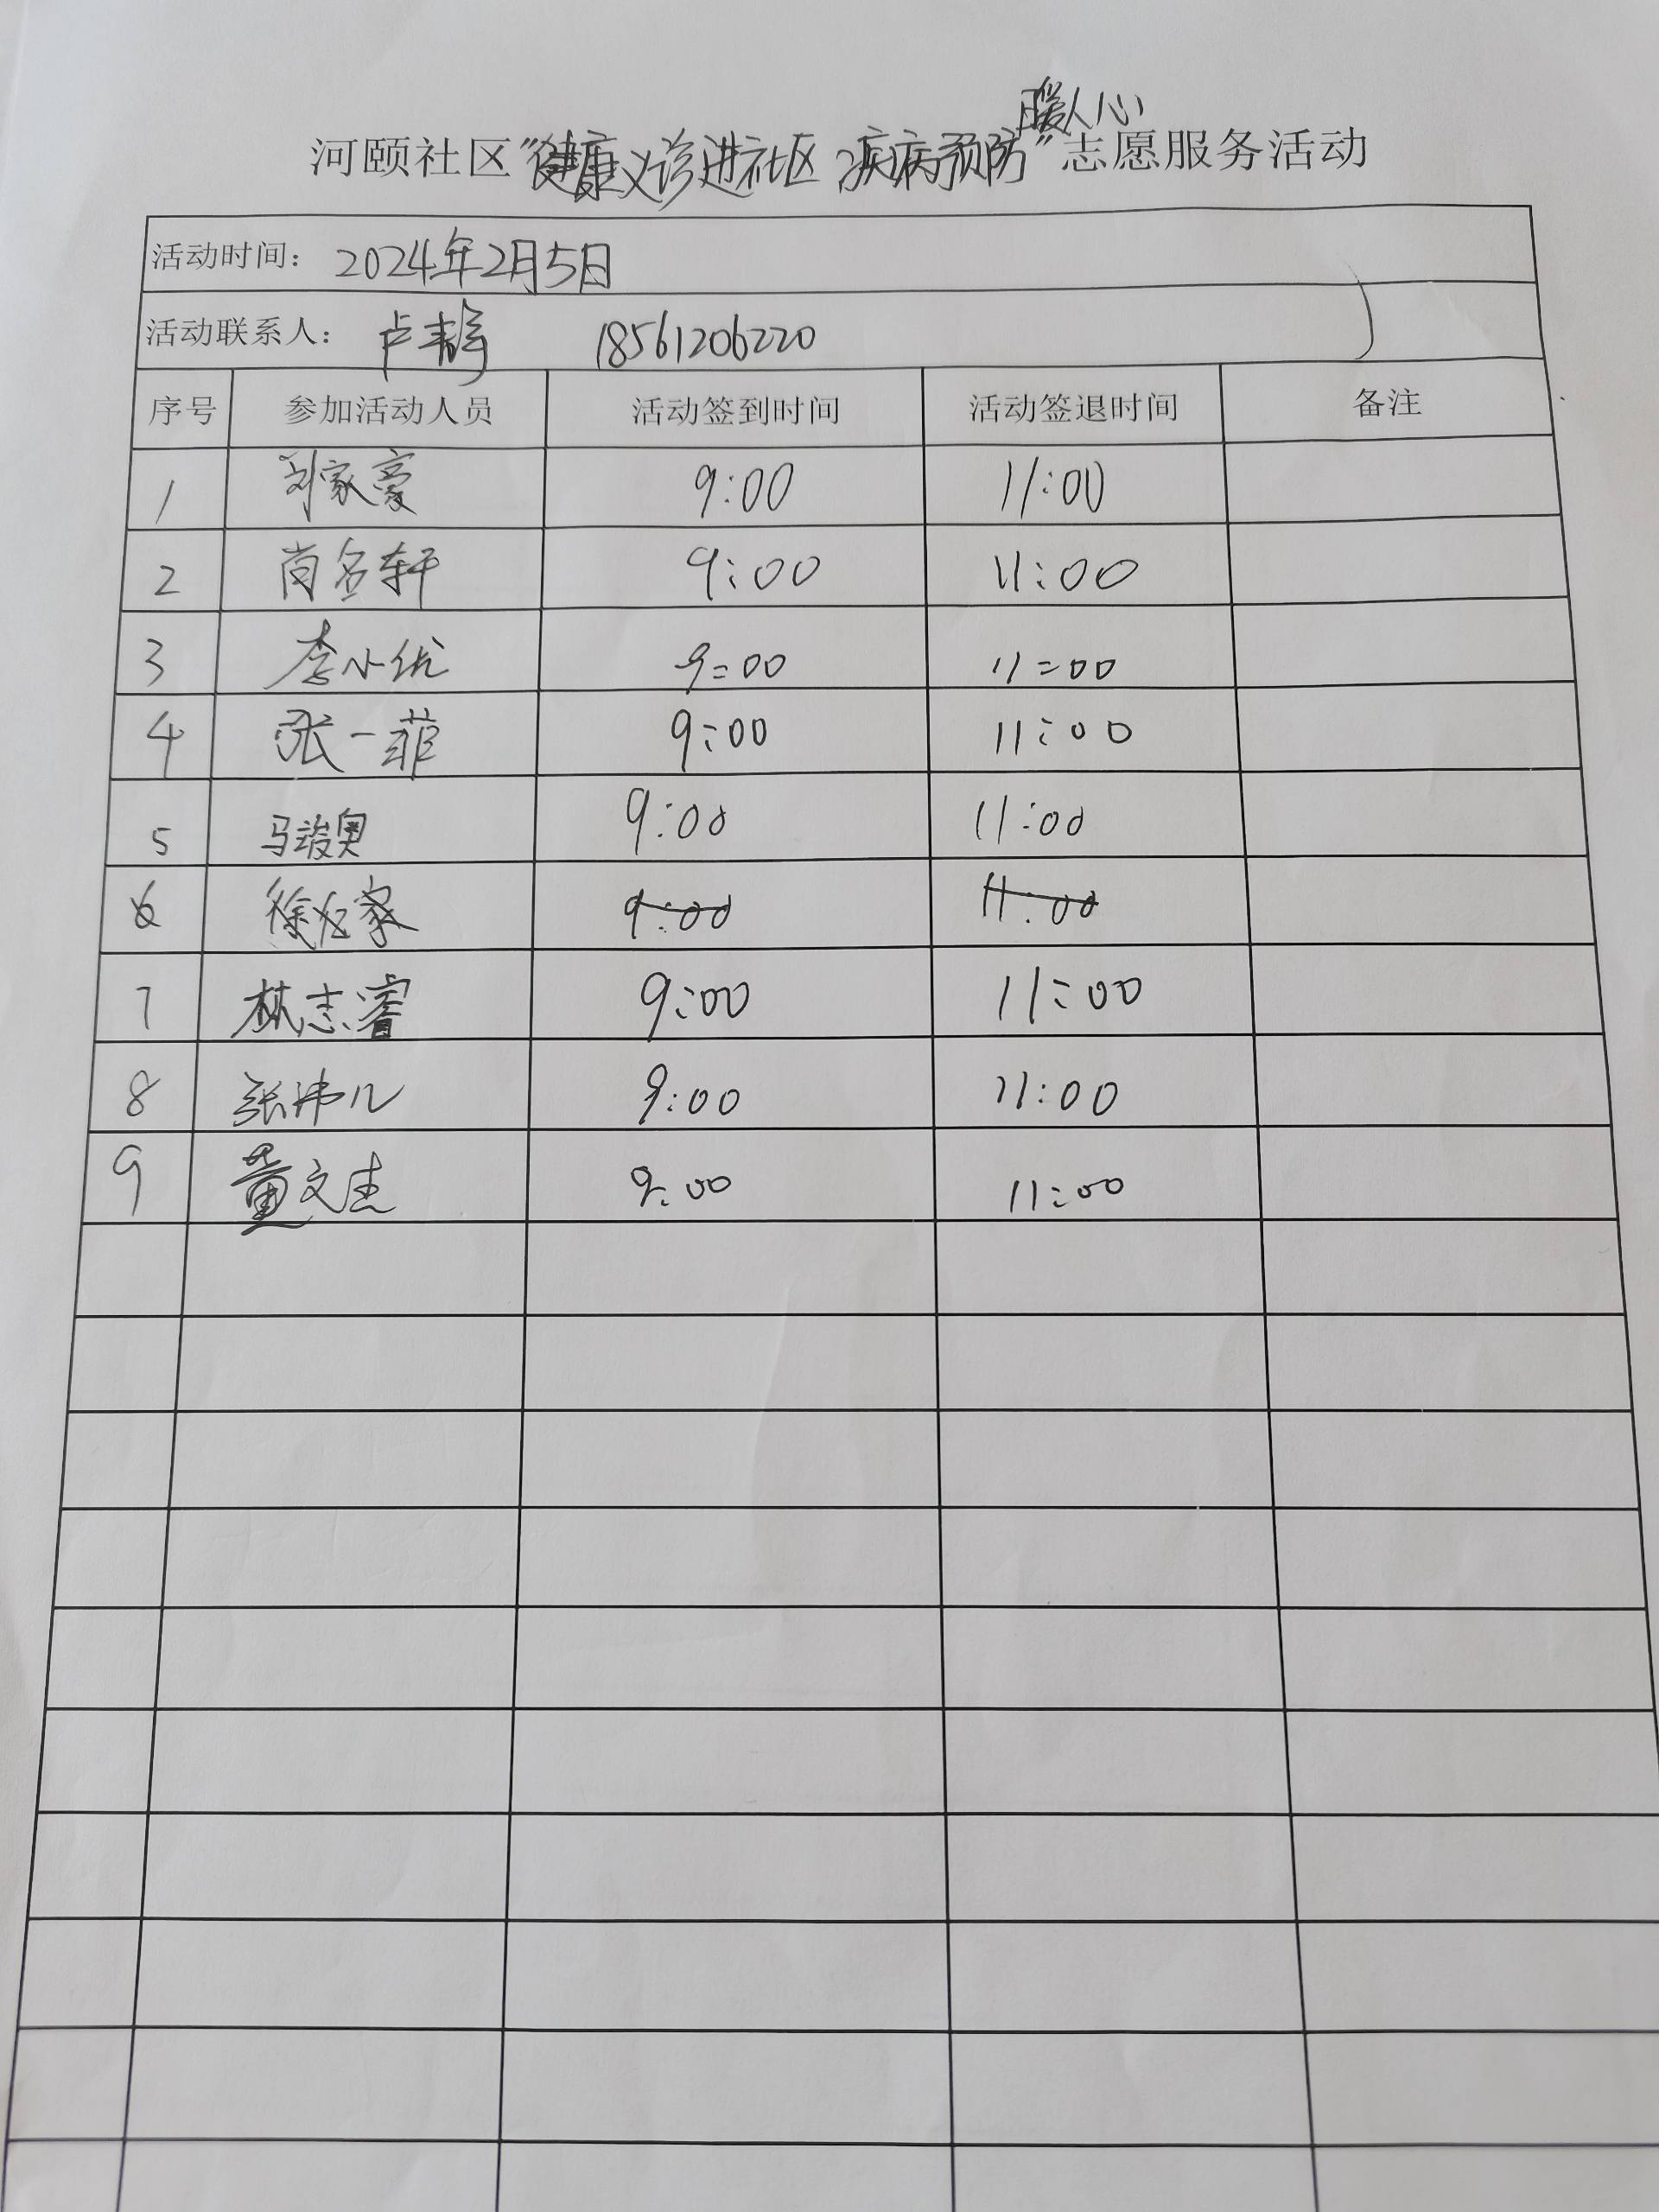 暖人心
河颐社区“健康义诊进社区 疾病预防”志愿服务活动
活动时间：2024年2月5日
活动联系人：卢静 18561206220
序号 参加活动人员 活动签到时间 活动签退时间 备注
1 刘家豪 9:00 11:00
2 肖名轩 9:00 11:00
3 李小优 9:00 11:00
4 张一菲 9:00 11:00
5 马竣奥 9:00 11:00
6 9:00 11:00
7 林志睿 9:00 11:00
8 9:00 11:00
9 董文杰 9:00 11:00